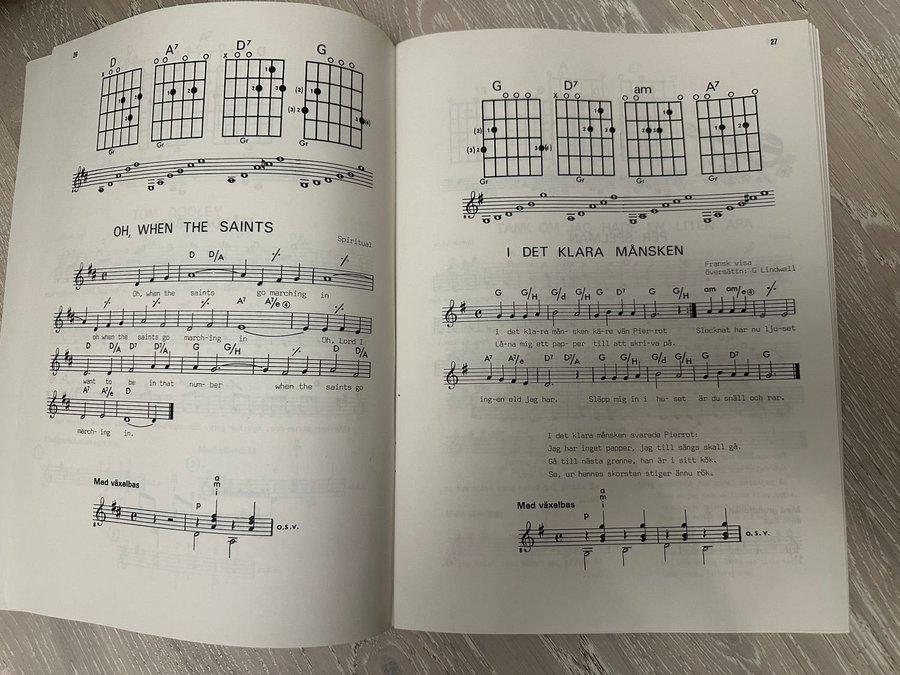 26
D A7 D7 G
x o o o o o o x o o o o o
1 2 3 1 2 1 2 3 (2) 1 (3) 2 3 (4)
Gr Gr Gr Gr
OH, WHEN THE SAINTS
Spiritual
D D/A
Oh, when the saints go marching in
A7 A7/e ④
oh when the saints go march- ing in Oh, Lord I
D D/A D7 D7/A G G/H D D/A
want to be in that num- ber when the saints go
A7 A7/e D
march- ing in.
Med växelbas
a
m
i
p
o.s.v.
27
G D7 am A7
o o o x o o o o o o o
(2) 1 (3) 2 3 (4) 1 2 3 1 2 3 1 2
Gr Gr Gr
I DET KLARA MÅNSKEN
Fransk visa
översättn: G Lindwall
G G/H G/d G/H G D7 G G/H am am/e ④
I det kla-ra mån- sken kä-re vän Pier-rot Slocknat har nu lju-set
Lå-na mig ett pap- per till att skri-va på.
A7 A7/e D G G/H G/d G/H G D7 G
ing-en eld jag har. Släpp mig in i hu- set är du snäll och rar.
I det klara månsken svarade Pierrot:
Jag har inget papper, jag till sängs skall gå.
Gå till nästa granne, han är i sitt kök.
Se, ur hennes skorsten stiger ännu rök.
Med växelbas
a
m
i
p
o.s.v.